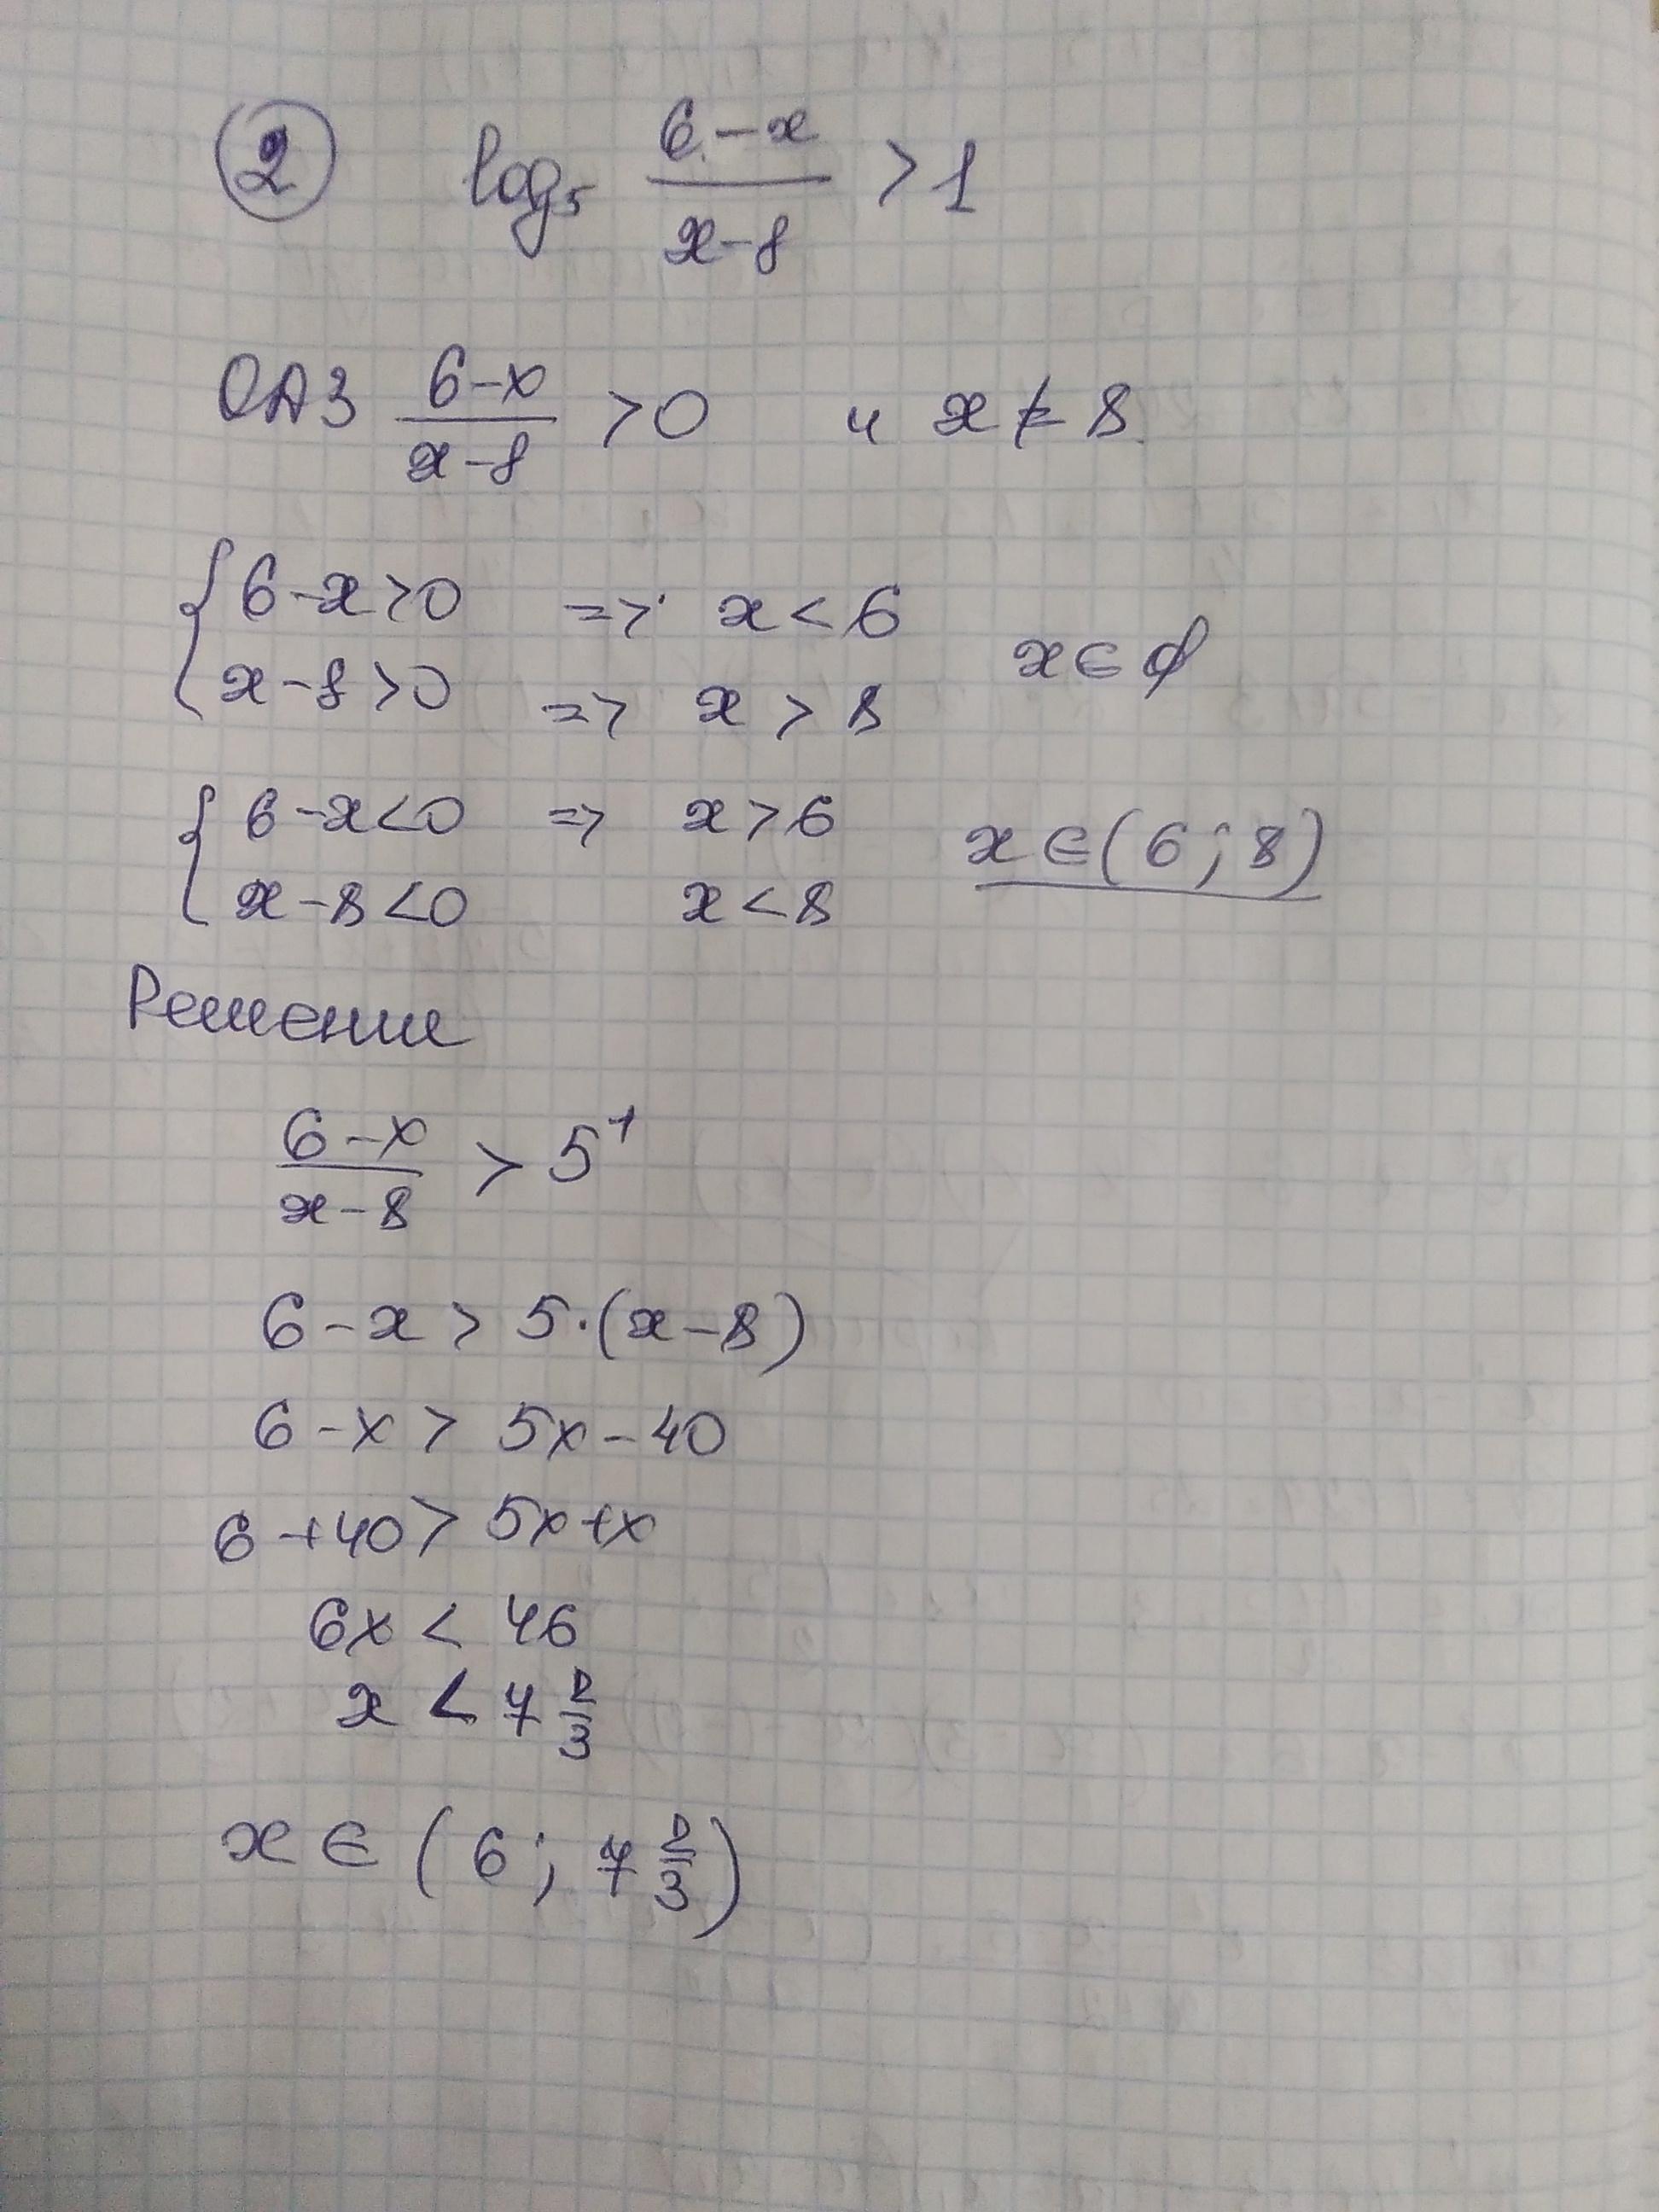 2 log₅ (6-x)/(x-8) > 1
ОДЗ (6-x)/(x-8) > 0 и x ≠ 8
{ 6-x>0 => x < 6
x-8>0 => x > 8 x ∈ ∅
{ 6-x<0 => x > 6
x-8<0 x < 8 x ∈ (6; 8)
Решение
(6-x)/(x-8) > 5¹
6-x > 5·(x-8)
6-x > 5x-40
6+40 > 5x+x
6x < 46
x < 7 2/3
x ∈ (6; 7 2/3)